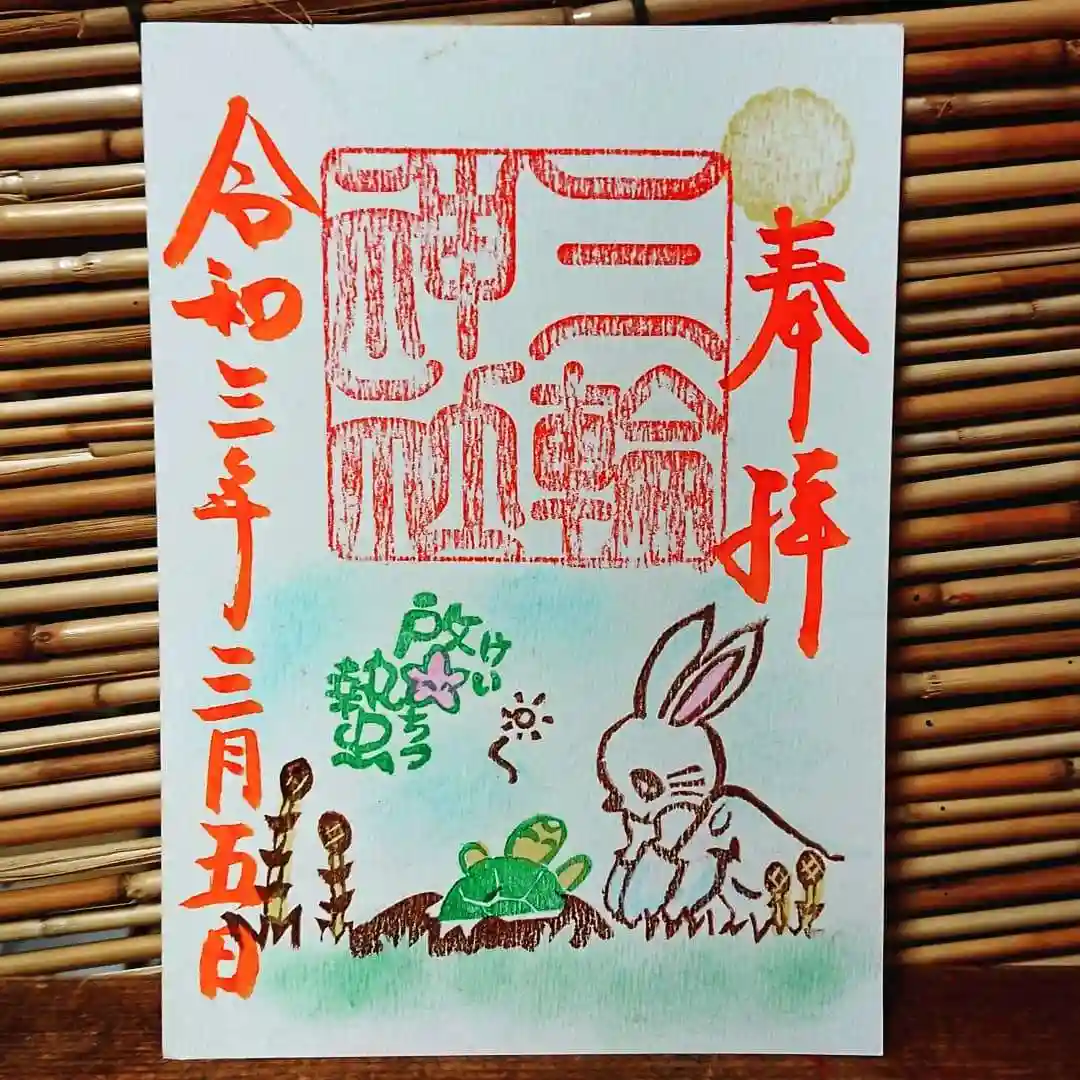 奉拝
三輪
神社
けいちつ
啟蟄
令和三年三月五日